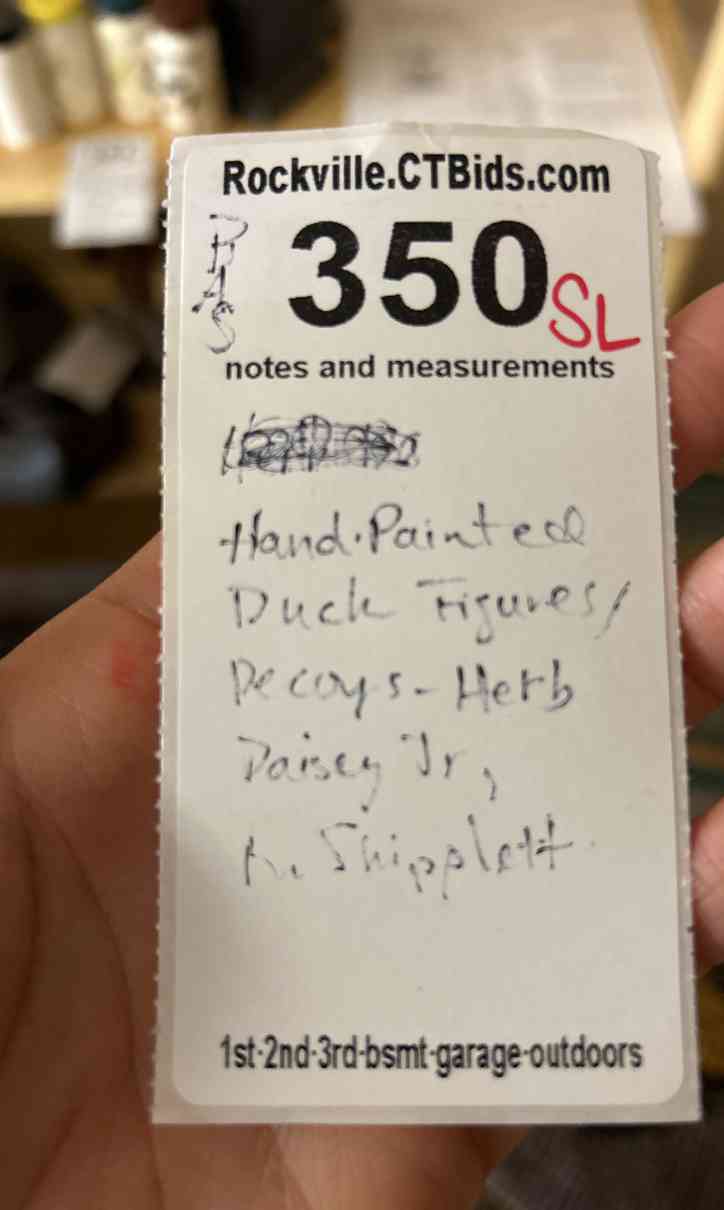 Rockville.CTBids.com
350
SL
notes and measurements
Hand-Painted
Duck Figures/
Decoys - Herb
Daisey Jr,
Shipplett
1st-2nd-3rd-bsmt-garage-outdoors